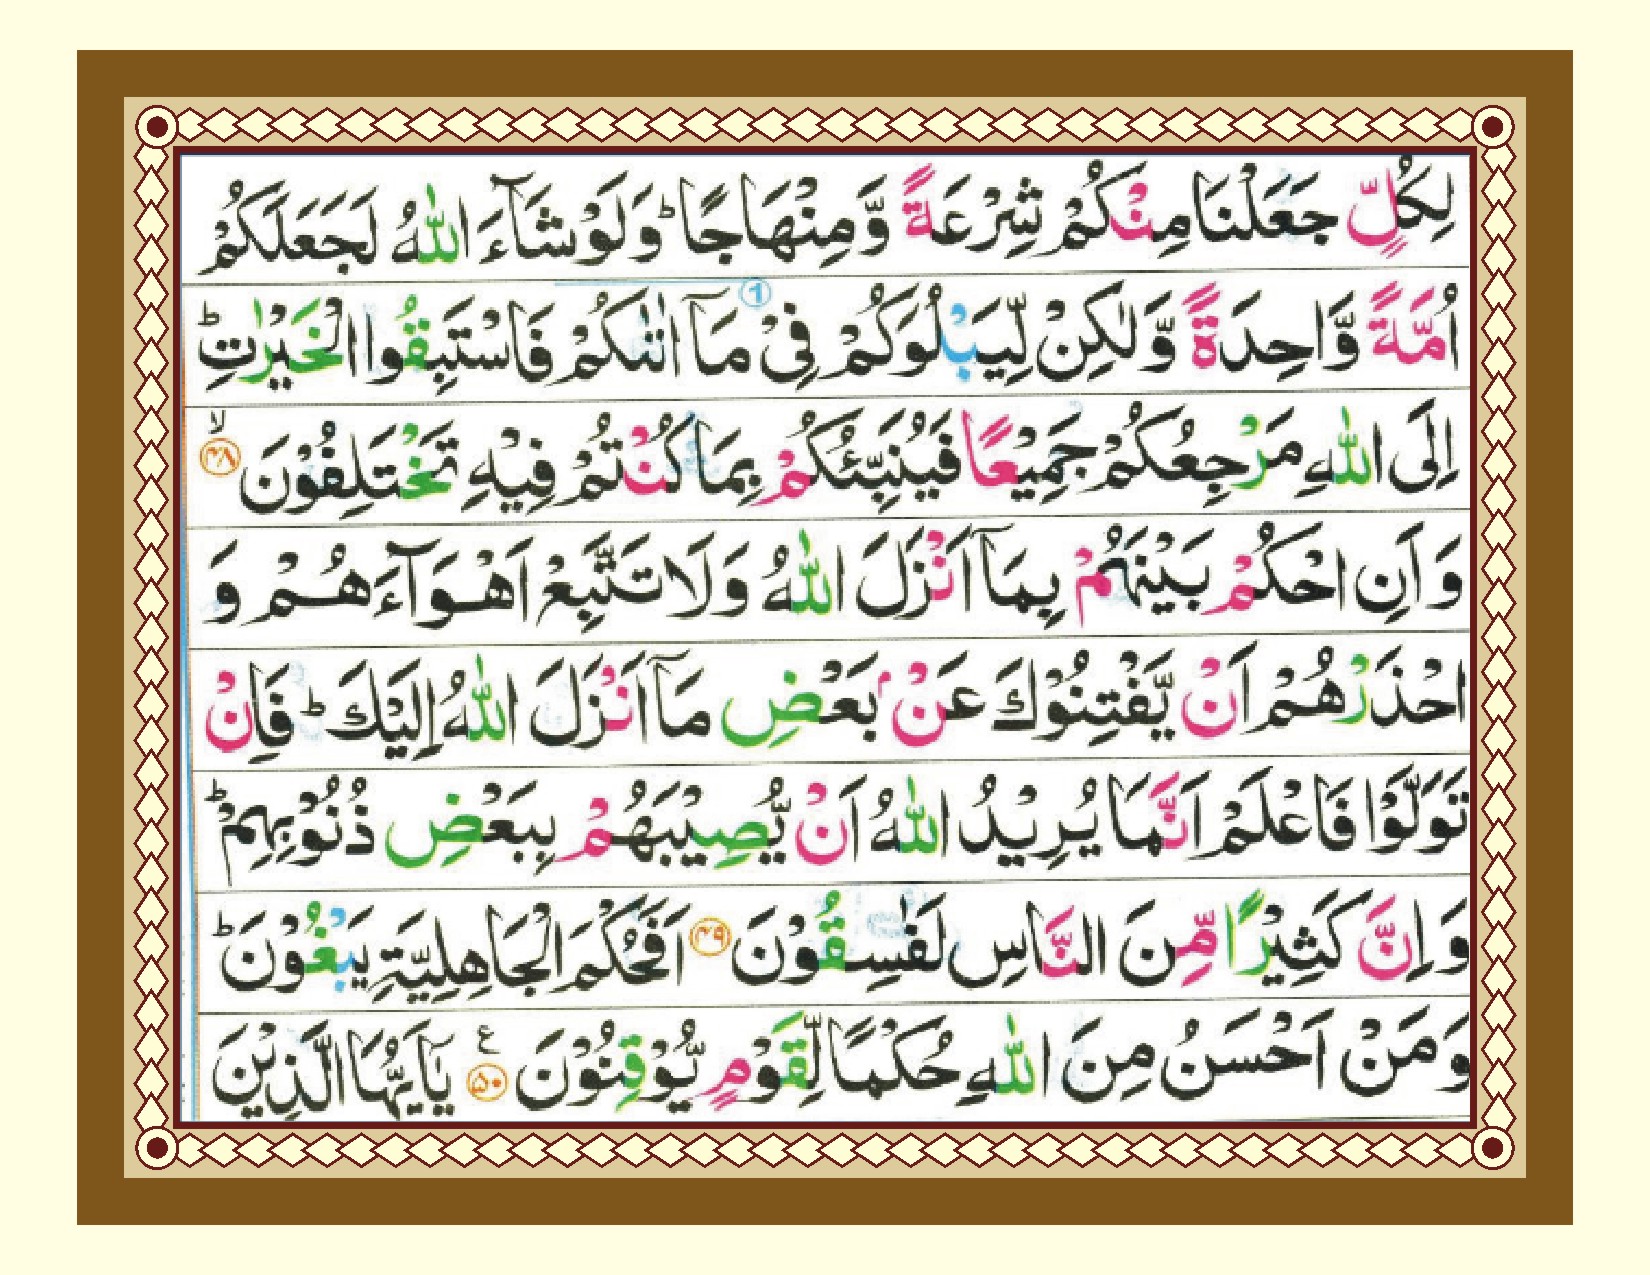 لِكُلٍّ جَعَلْنَا مِنْكُمْ شِرْعَةً وَّمِنْهَاجًا ؕ وَلَوْ شَآءَ اللّٰهُ لَجَعَلَكُمْ
اُمَّةً وَّاحِدَةً وَّلٰكِنْ لِّيَبْلُوَكُمْ فِىْ مَاۤ اٰتٰىكُمْ فَاسْتَبِقُوا الْخَيْرٰتِ ؕ
اِلَى اللّٰهِ مَرْجِعُكُمْ جَمِيْعًا فَيُنَبِّئُكُمْ بِمَا كُنْتُمْ فِيْهِ تَخْتَلِفُوْنَ ۙ ﴿۴۸﴾
وَ اَنِ احْكُمْ بَيْنَهُمْ بِمَاۤ اَنْزَلَ اللّٰهُ وَلَا تَتَّبِعْ اَهْوَآءَهُمْ وَ
احْذَرْهُمْ اَنْ يَّفْتِنُوْكَ عَنْۢ بَعْضِ مَاۤ اَنْزَلَ اللّٰهُ اِلَيْكَ ؕ فَاِنْ
تَوَلَّوْا فَاعْلَمْ اَنَّمَا يُرِيْدُ اللّٰهُ اَنْ يُّصِيْبَهُمْ بِبَعْضِ ذُنُوْبِهِمْ ؕ
وَ اِنَّ كَثِيْرًا مِّنَ النَّاسِ لَفٰسِقُوْنَ ﴿۴۹﴾ اَفَحُكْمَ الْجَاهِلِيَّةِ يَبْغُوْنَ ؕ
وَمَنْ اَحْسَنُ مِنَ اللّٰهِ حُكْمًا لِّقَوْمٍ يُّوْقِنُوْنَ ﴿۵۰﴾ ع يٰۤاَيُّهَا الَّذِيْنَ